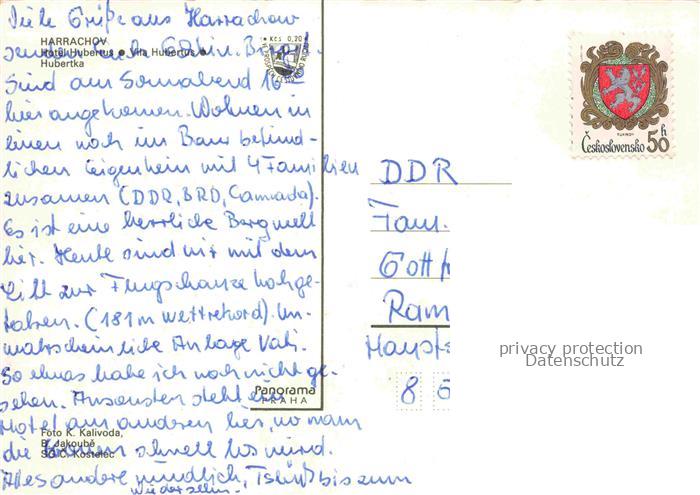 Viele Grüße aus Harrachov
HARRACHOV
Hotel Hubertus ● Vila Hubertus ●
Hubertka
Kčs 0,20
sind am Sonnabend 16
hier angekommen. Wohnen in
einen noch im Bau befind-
lichen Eigenheim mit 4 Familien
zusammen (DDR, BRD, Cannada).
Es ist eine herrliche Bergwelt
hier. Heute sind wir mit dem
Lift zur Flugschanze hochge-
fahren. (181 m Weltrekord). Un-
wahrscheinliche Anlage Vati.
So etwas habe ich noch nicht ge-
sehen. Ansonsten steht ein
Hotel am anderen hier, wo man
die schnell los wird.
Alles andere mündlich, Tschüß bis zum
wiedersehn.
Panorama
PRAHA
Foto K. Kalivoda,
B. Jakoubě
SČ C. Kostelec
Československo 50 h
DDR
Fam.
Gott
Ram
Haupts
8
privacy protection
Datenschutz